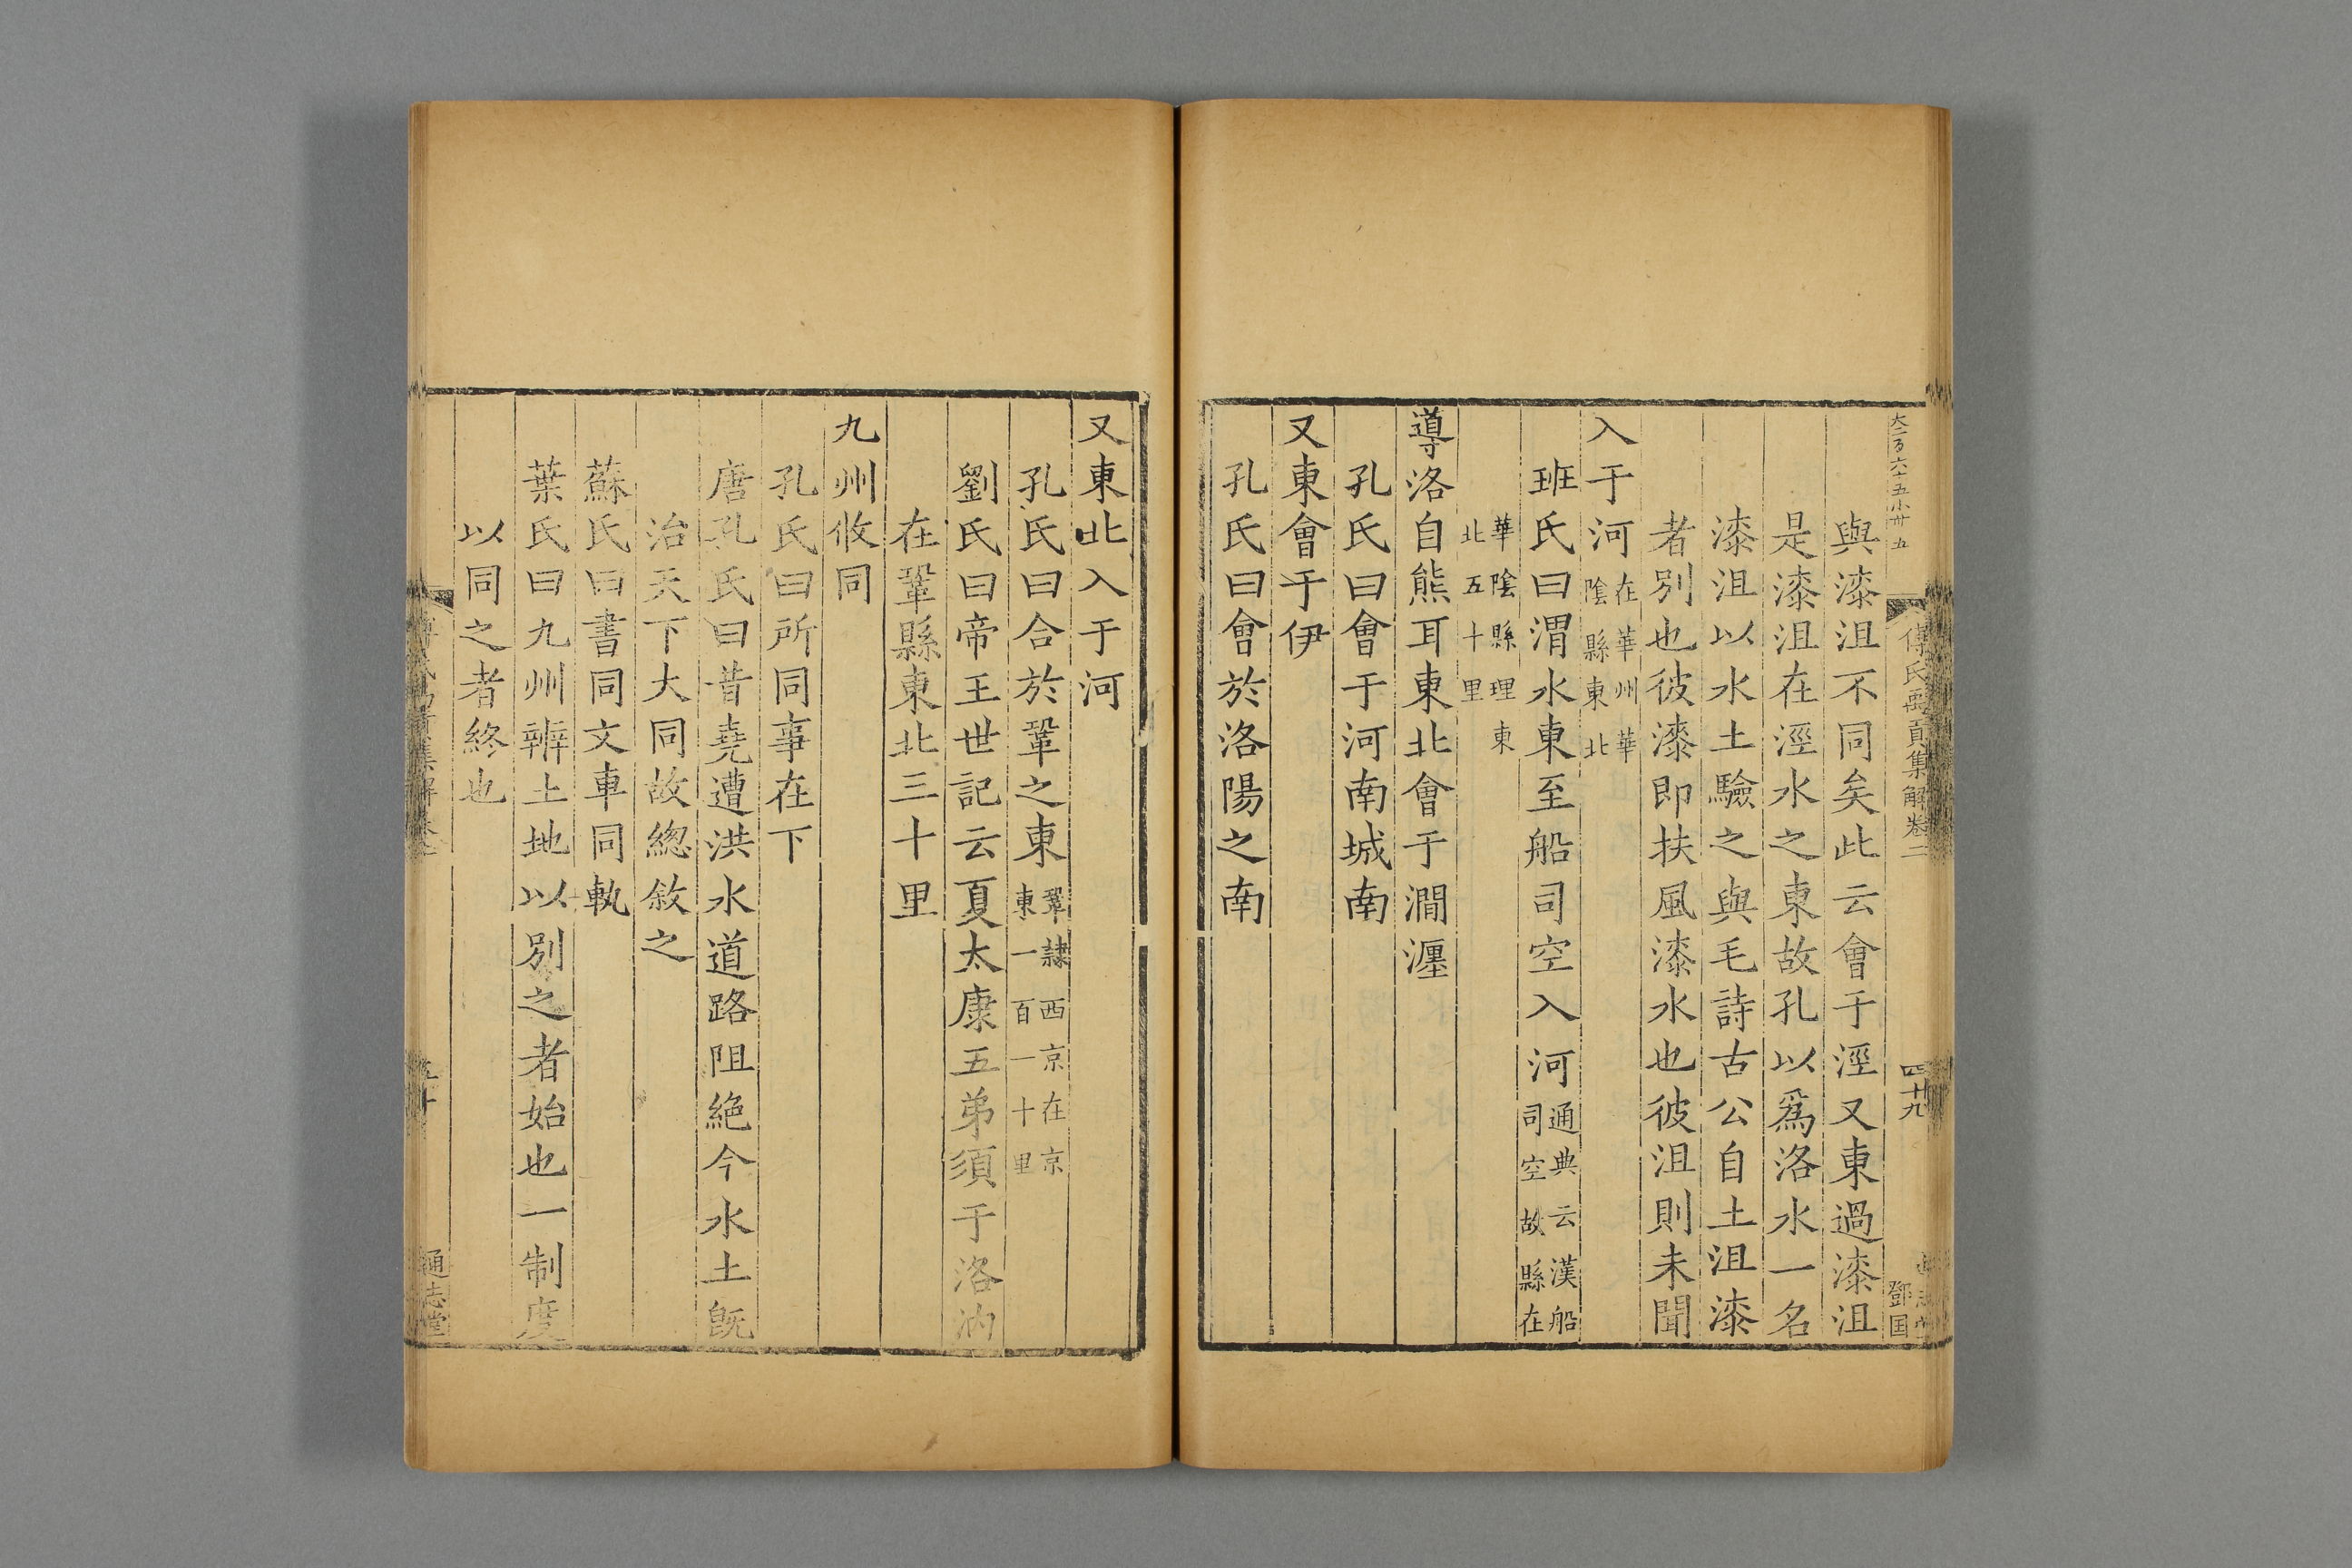 大二百六十五小卅五
傅氏禹貢集解卷二
四十九
鄧国
與漆沮不同矣此云會于涇又東過漆沮
是漆沮在涇水之東故孔以爲洛水一名
漆沮以水土驗之與毛詩古公自土沮漆
者別也彼漆即扶風漆水也彼沮則未聞
入于河在華州華陰縣東北
班氏曰渭水東至船司空入河通典云漢船司空故縣在
華陰縣理東北五十里
導洛自熊耳東北會于澗瀍
孔氏曰會于河南城南
又東會于伊
孔氏曰會於洛陽之南
又東北入于河
孔氏曰合於鞏之東鞏隷西京在京東一百一十里
劉氏曰帝王世記云夏太康五弟須于洛汭
在鞏縣東北三十里
九州攸同
孔氏曰所同事在下
唐孔氏曰昔堯遭洪水道路阻絶今水土旣
治天下大同故總敘之
蘇氏曰書同文車同軌
葉氏曰九州辨土地以別之者始也一制度
以同之者終也
通志堂